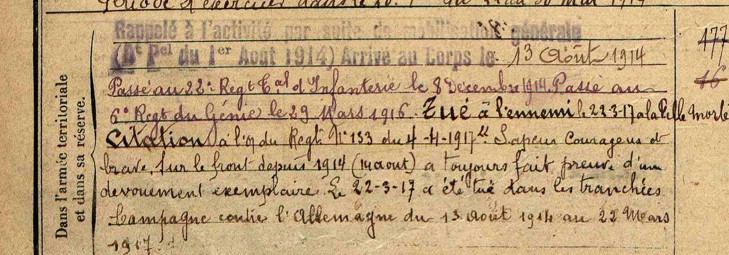 Rappelé à l'activité par suite de mobilisation générale
(Dt Pel du 1er Août 1914) Arrivé au Corps le 13 Août 1914
Passé au 22e Regt Cal d'Infanterie le 8 Décembre 1914. Passé au
6e Regt du Génie le 29 Mars 1916. Tué à l'ennemi le 22-3-17 a la Fille Morte
Citation à l'O du Regt N° 133 du 4-4-1917 Sapeur Courageux et
brave. Sur le front depuis 1914 (14 aout) a toujours fait preuve d'un
devouement exemplaire. Le 22-3-17 a été tué dans les tranchées
Campagne contre l'Allemagne du 13 Août 1914 au 22 Mars
1917.
Dans l'armée territoriale
et dans sa réserve.
177
16